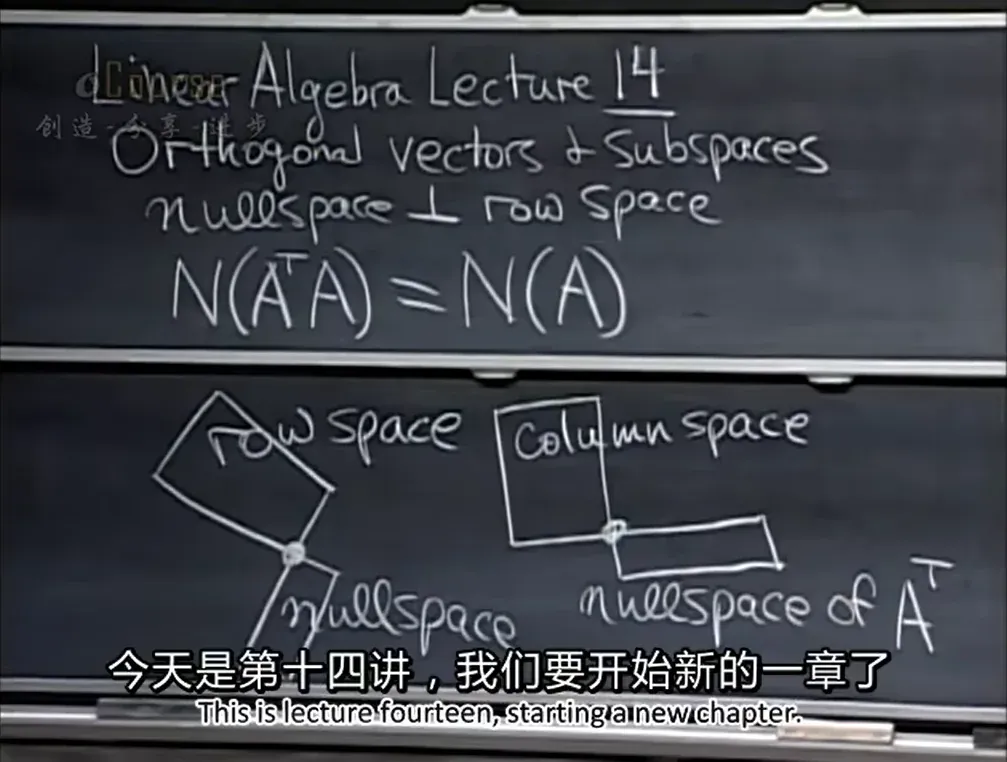 Linear Algebra Lecture 14
创造-分享-进步
Orthogonal vectors & Subspaces
nullspace ⊥ row space
N(AᵀA) = N(A)
row space
column space
nullspace
nullspace of Aᵀ
今天是第十四讲，我们要开始新的一章了
This is lecture fourteen, starting a new chapter.